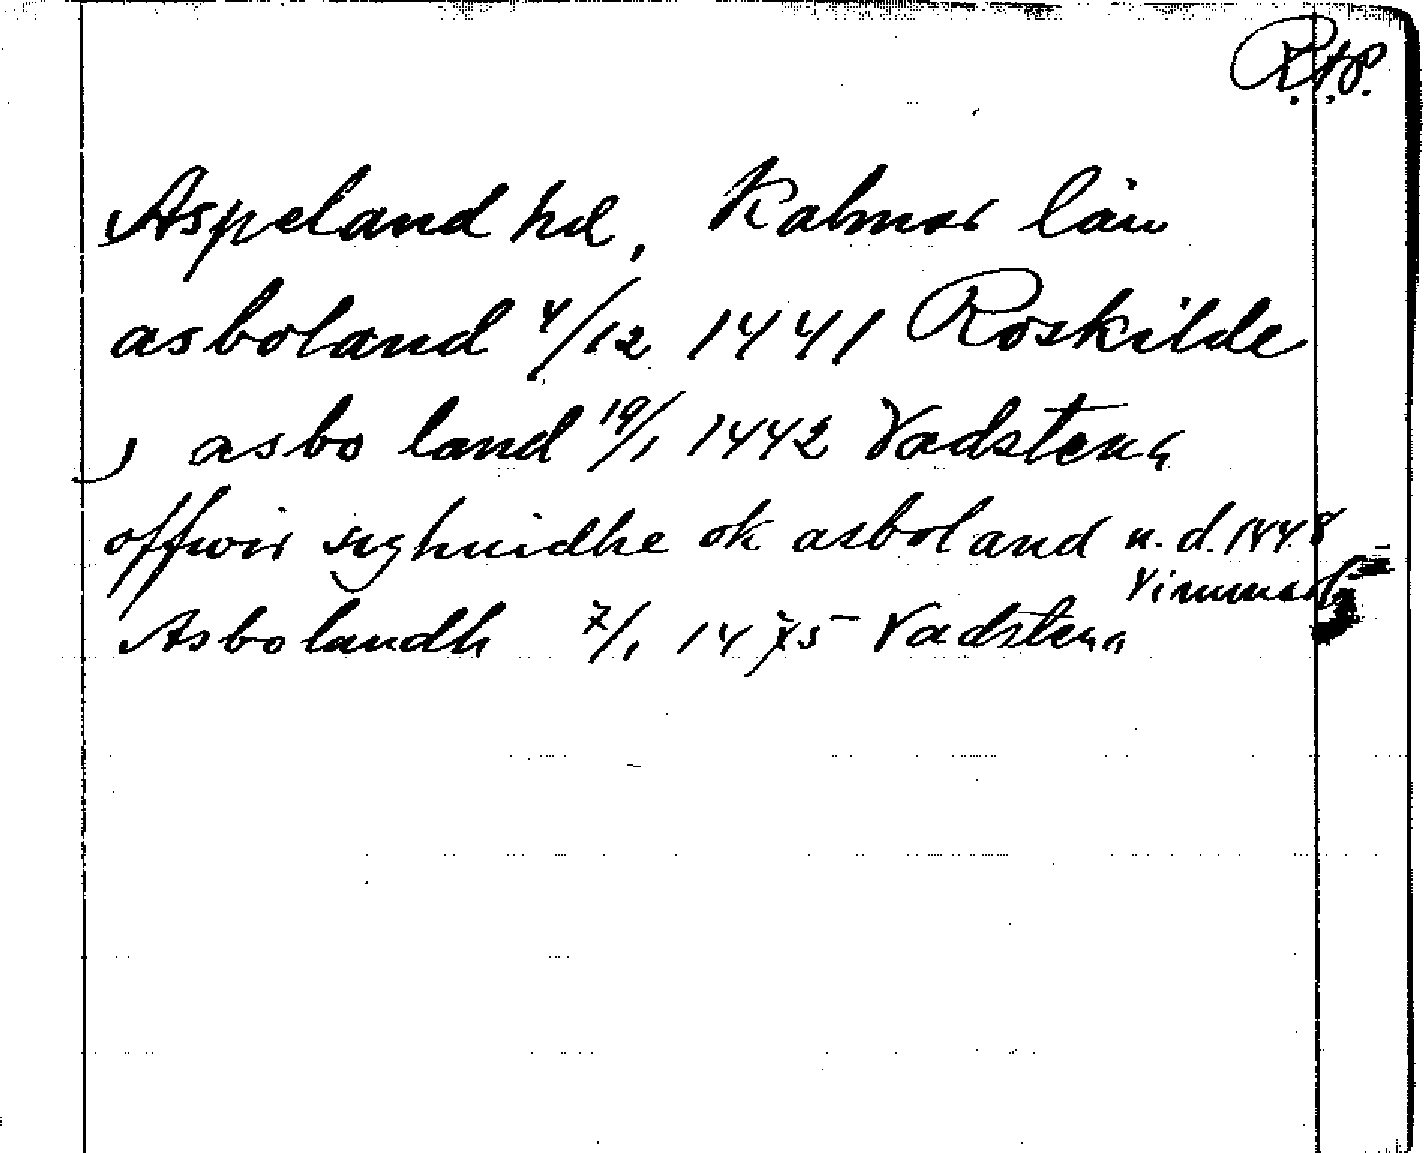 R.A.P.
Aspeland hd, Kalmar län
asboland 4/12 1441 Roskilde
, asbo land 19/1 1442 Vadstena
offwir sighuidhe ok asboland u. d. 1448
Asbolandh 7/1 1475 Vadstena